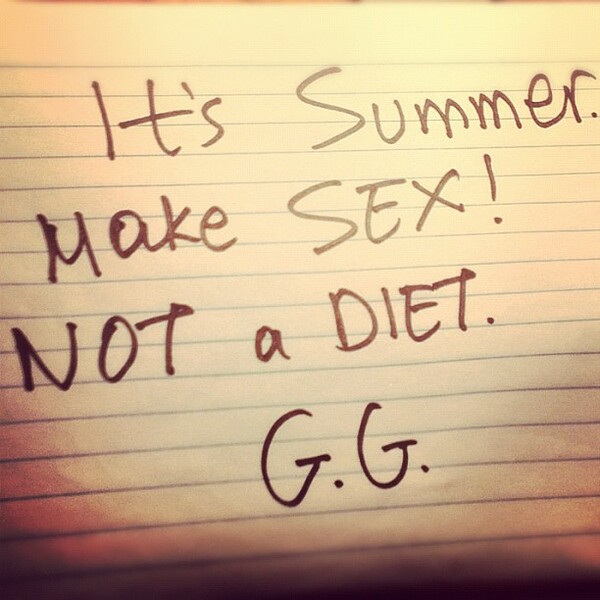 It's Summer.
Make SEX!
NOT a DIET.
G.G.